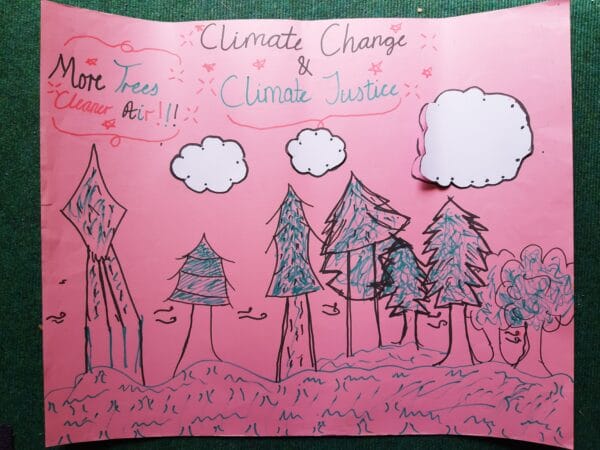 Climate Change
&
Climate Justice
More Trees
Cleaner Air!!!